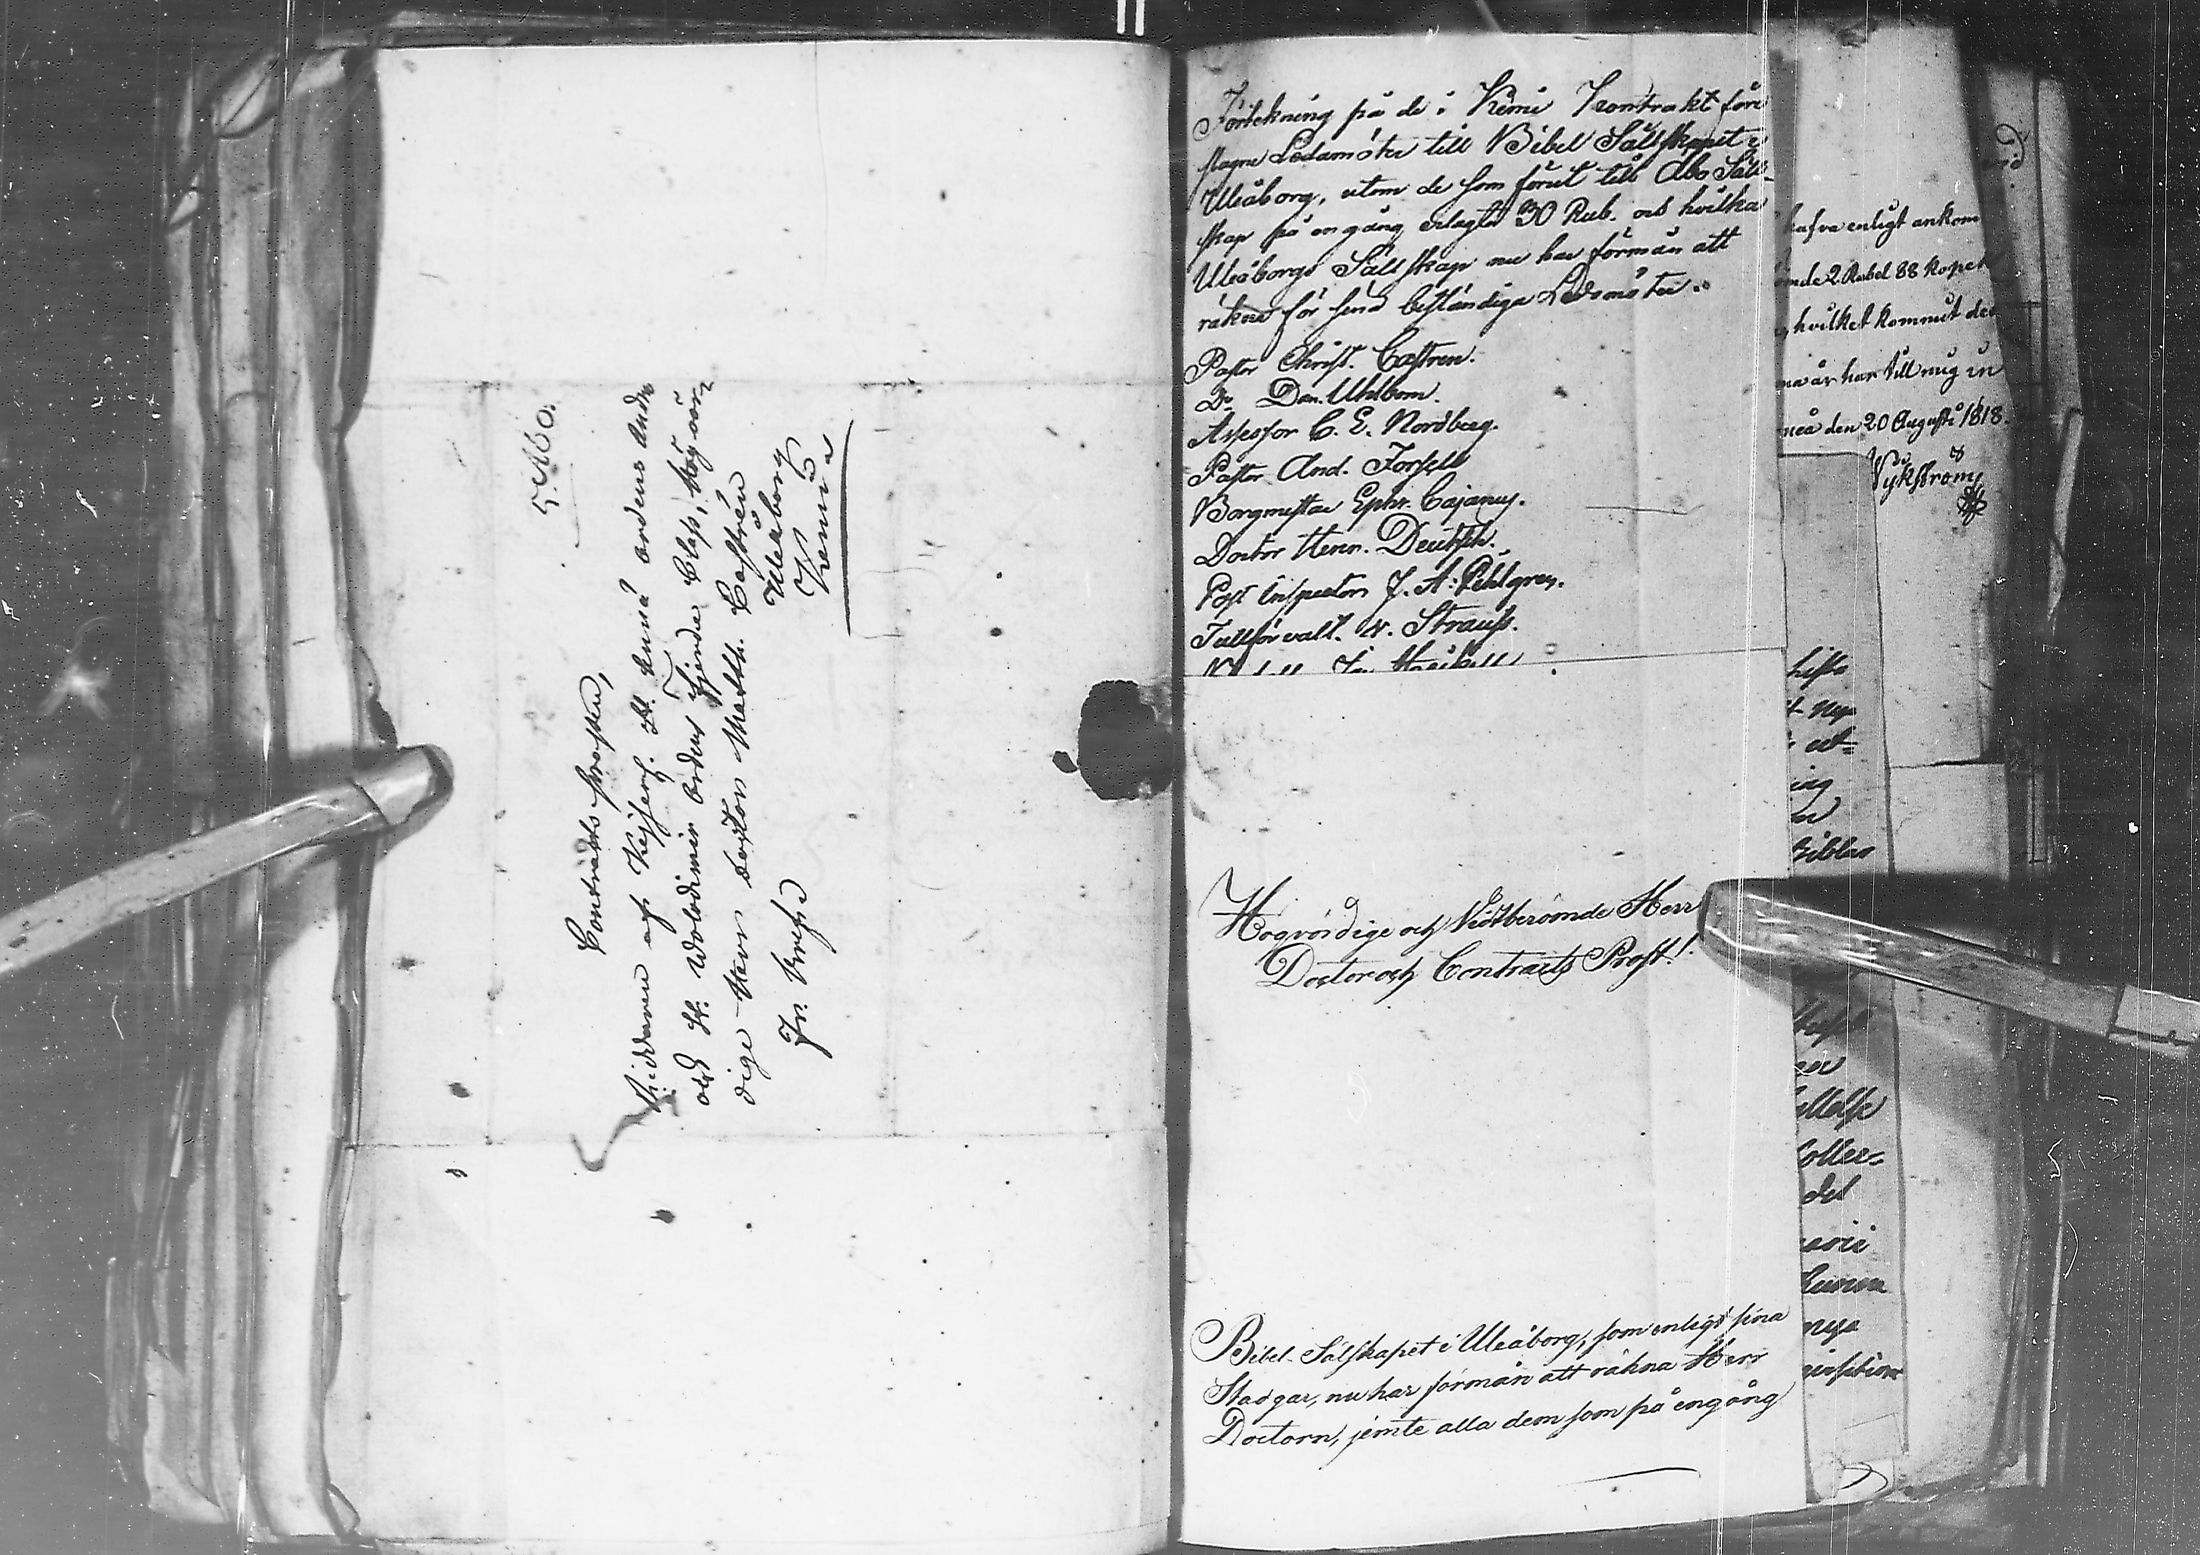 5. Mbo.
Contracts Prosten,
Riddaren af Kejserl. St. Anna ordens Andra
och St. Wolodimir Ordens Fjerde Class, Högvör-
dige Herr Doctor Matth. Castrén
Fr. Bref
Uleåborg
Kemi
Förtekning på de i Kemi Kontrakt före
slagne Ledamöter till Bibel Sällskapet i
Uleåborg, utom de som förut till Åbo Säll-
skap på en gång erlagt 30 Rub. och hvilka
Uleåborgs Sällskap nu har förmån att
räkna för sina beständiga Ledamöter.
Pastor Christ. Castren.
Do Dan. Uhlbom.
Assessor C. E. Nordberg.
Pastor And. Forsell
Borgmästar Ephr. Cajanus.
Doctor Herm. Deutsch.
Post Inspector J. A. Pihlgren.
Tullförvalt. v. Strauss.
Högvördige och Vidtberömde Herr
Doctor och Contracts Prost!
Bibel-Sälskapet i Uleåborg, som enligt sina
Stadgar, nu har förmån att räkna Herr
Doctorn, jemte alla dem som på engång
hafva enligt ankom
ömde 2 Rubel 88 kopek
hvilket kommit der
na år har till mig in
neå den 20 Augusti 1818.
Wykström
hista
t nya
ut=
ing
Biblar
ollers
del
kunna
nya